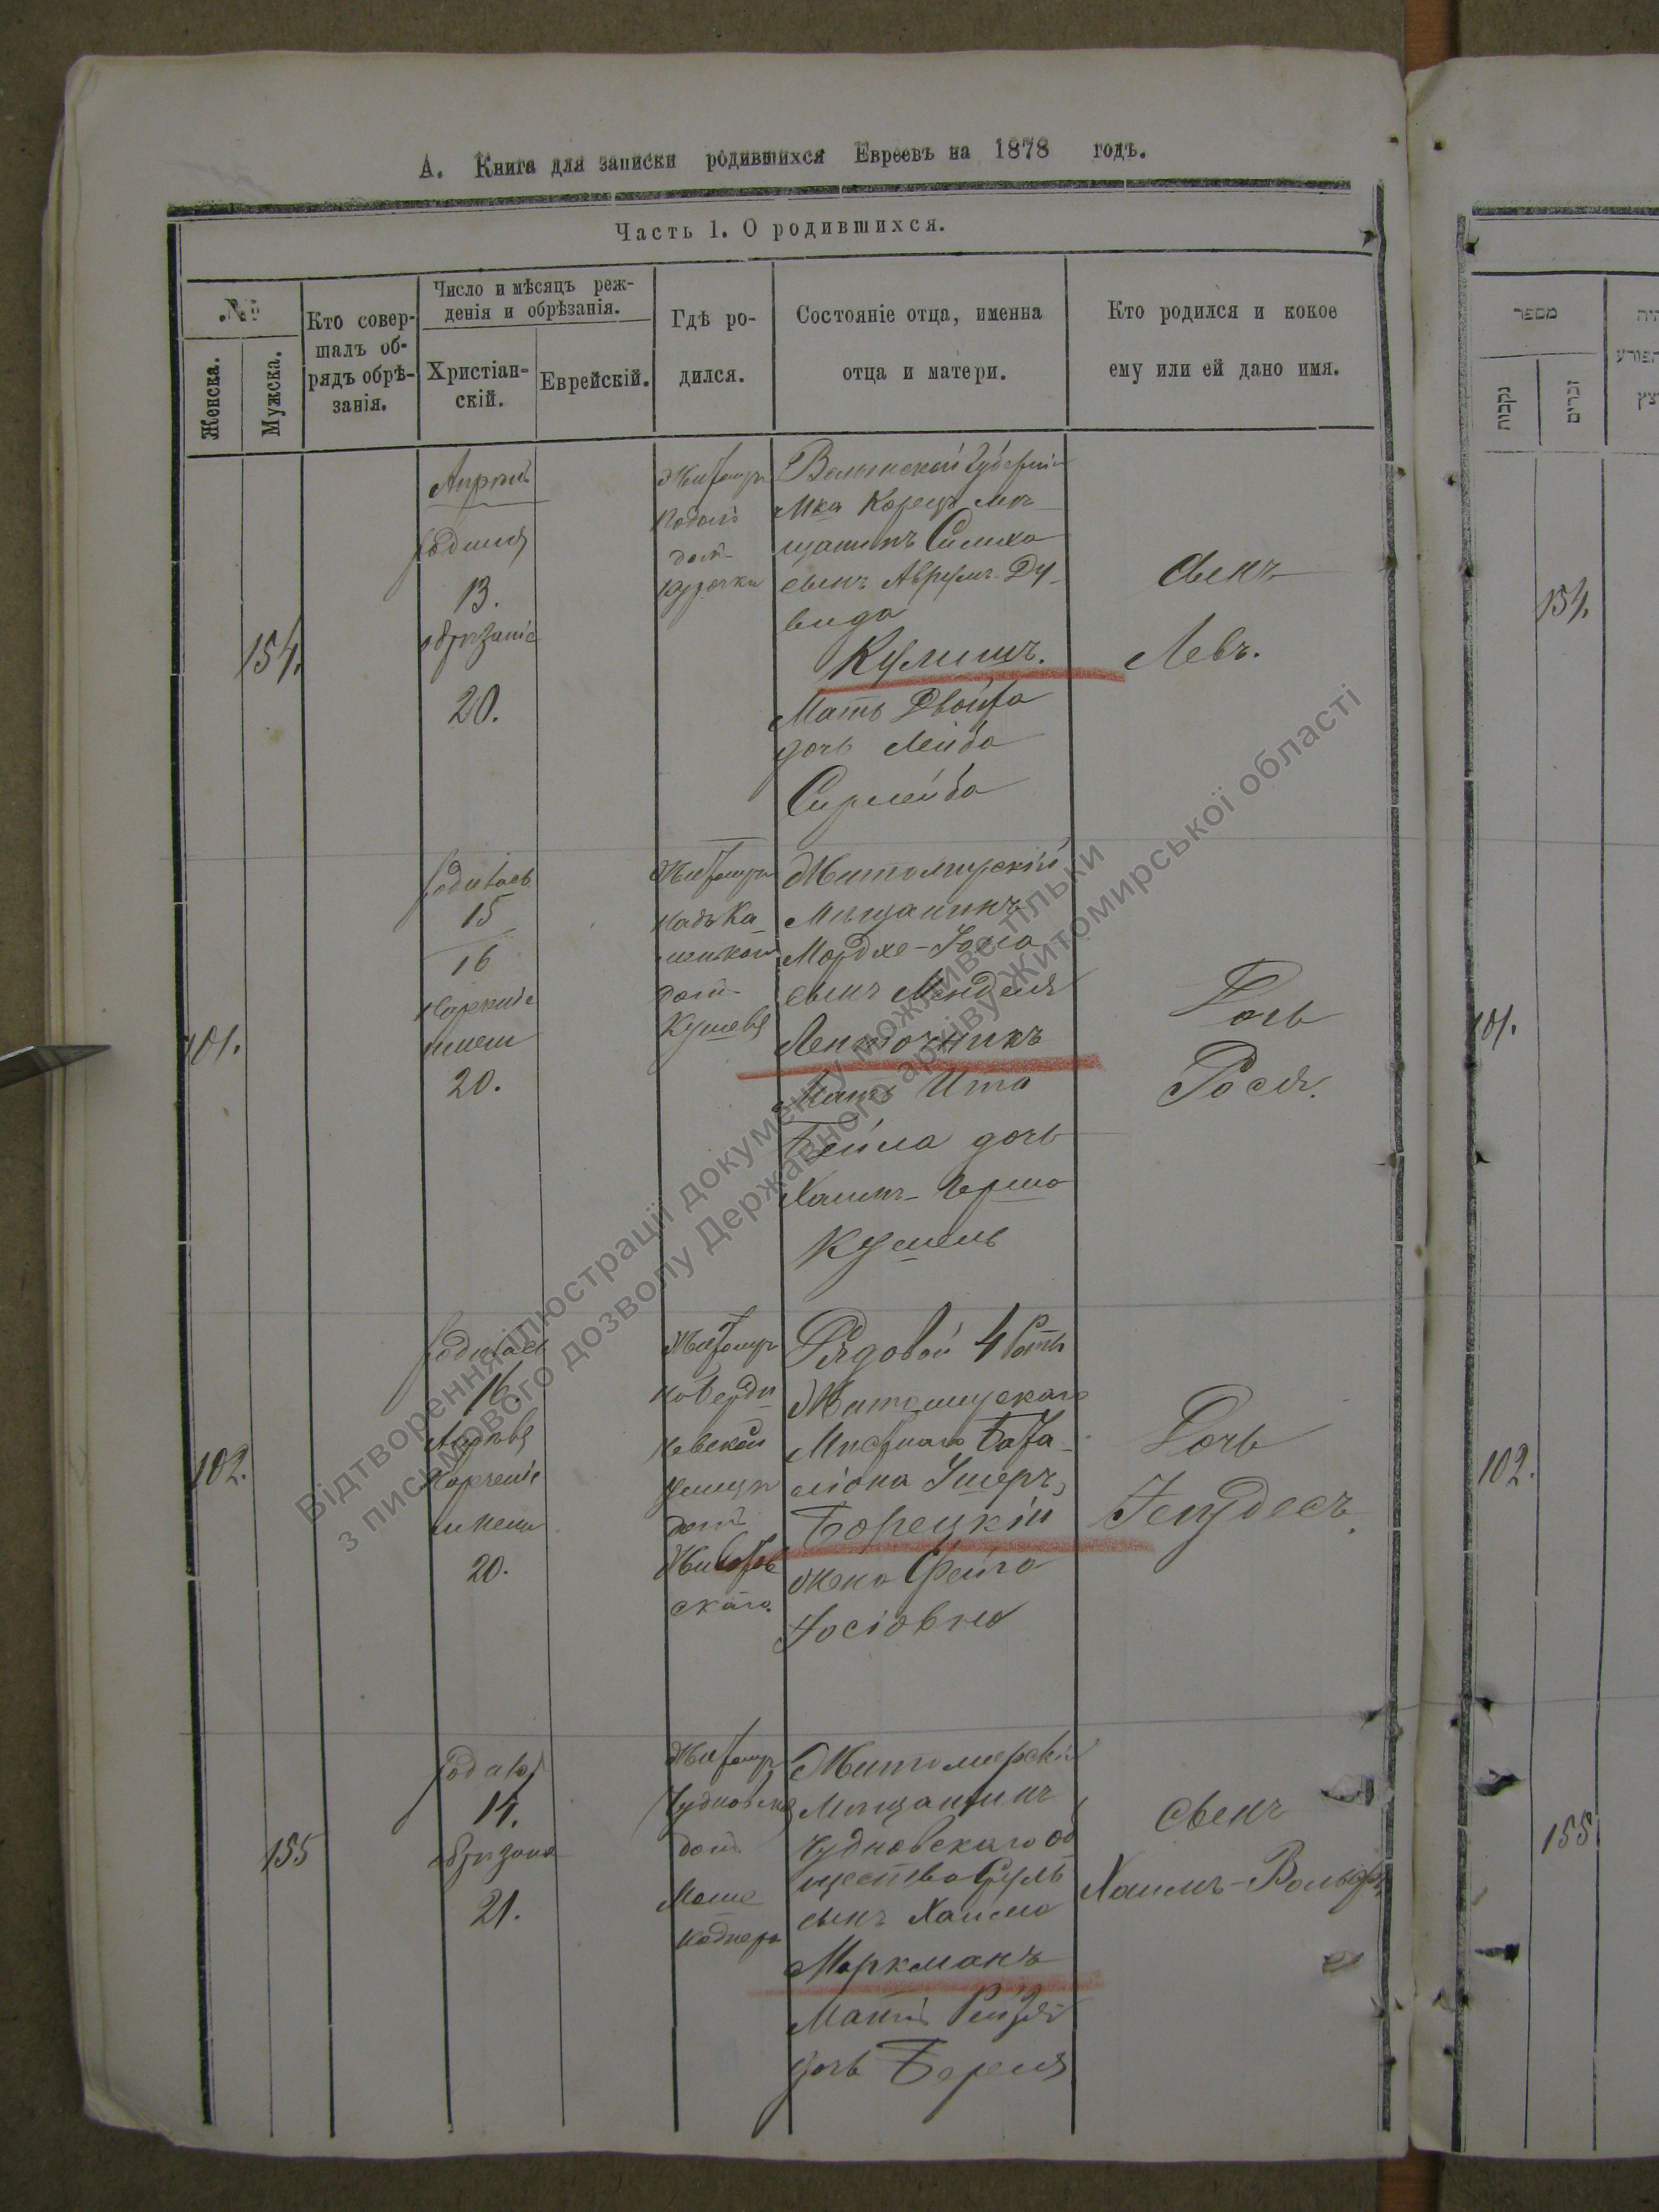 А. Книга для записки родившихся Евреевъ на 1878 годъ.
Часть 1. О родившихся.
№
Женска.
Мужска.
Кто совер-
шалъ об-
рядъ обрѣ-
занія.
Число и мѣсяцъ рож-
денія и обрѣзанія.
Христіан-
скій.
Еврейскій.
Гдѣ ро-
дился.
Состояніе отца, именна
отца и матери.
Кто родился и кокое
ему или ей дано имя.
154.
Апрѣль
родился
13.
обрѣзаніе
20.
Житомръ
Подолъ
домъ
Волынской Губерніи
Мка Корецъ мѣ-
щанинъ
сынъ Аврумъ Ду-
вида
Кулишъ.
Мать Двойра
дочь Лейба
сынъ
Левъ.
101.
родилась
15
16
нареченіе
имени
20.
Житомръ
надъ Ка-
менкой
домъ
Кушеля
Житомирскій
Мѣщанинъ
Мордхе-Іойна
сынъ Менделя
Ленточникъ
Мать Ита
Бейла дочь
Хаимъ-Герша
Кушель
Дочь
Рося.
102.
родилась
16
Апрѣля
Нареченіе
имени
20.
Житомръ
по Берди-
чевской
улицѣ
домъ
Рядовой 4 Роты
Житомирскаго
Мѣстнаго Бата-
ліона Ушеръ
Борецкій
жена Фейга
Іосіовна
Дочь
Іегудесъ.
155
родился
14.
обрѣзанъ
21.
Житомръ
Чудновска
домъ
Моше
Коднера
Житомирскій
Мѣщанинъ
Чудновскаго об
щества Сруль
сынъ Хаима
Маркманъ
Мать Рейзя
дочь Береля
сынъ
Хаимъ-Вольфъ
מספר
נקבות
זכרים
154.
101.
102.
155
Відтворення ілюстрації документу можливе тільки
з письмового дозволу Державного архіву Житомирської області